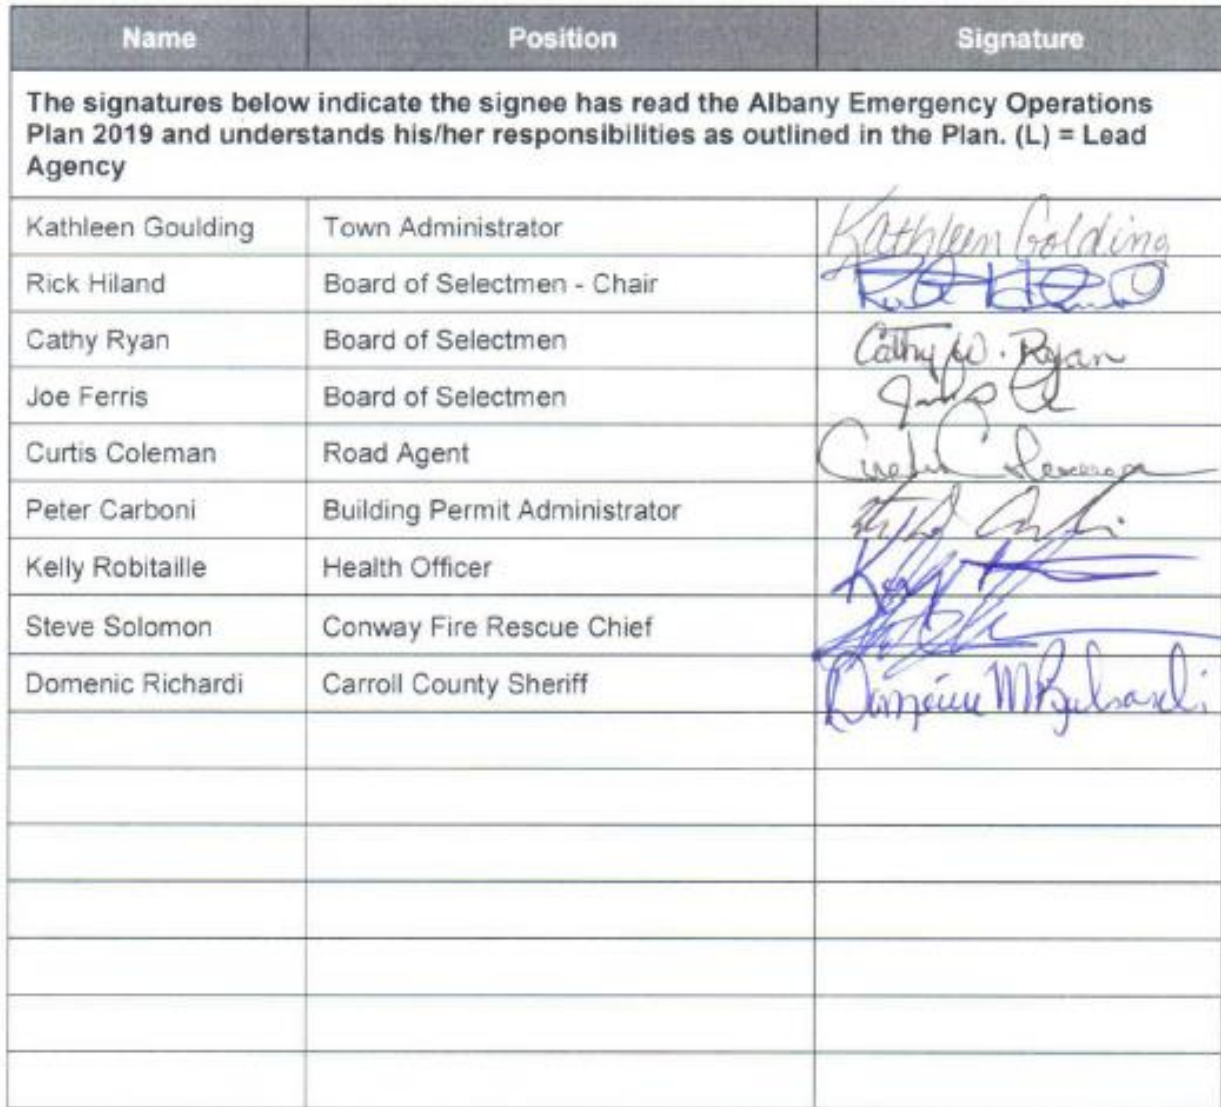 Name Position Signature
The signatures below indicate the signee has read the Albany Emergency Operations
Plan 2019 and understands his/her responsibilities as outlined in the Plan. (L) = Lead
Agency
Kathleen Goulding Town Administrator Kathleen Golding
Rick Hiland Board of Selectmen - Chair
Cathy Ryan Board of Selectmen Cathy W. Ryan
Joe Ferris Board of Selectmen
Curtis Coleman Road Agent
Peter Carboni Building Permit Administrator
Kelly Robitaille Health Officer
Steve Solomon Conway Fire Rescue Chief
Domenic Richardi Carroll County Sheriff